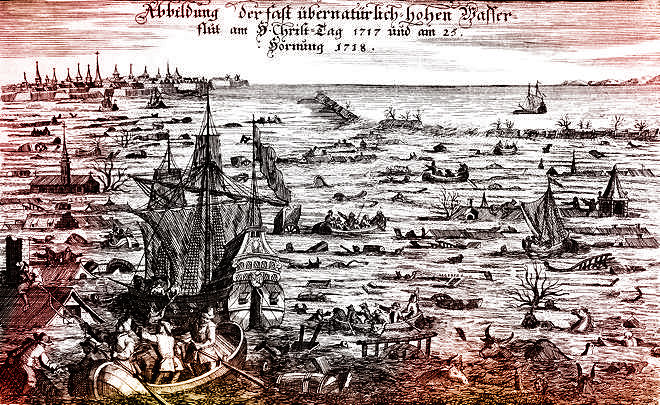 Abbeldung der fast übernatürlich-hohen Wasser-
flut am H. Christ-Tag 1717 und am 25.
Hornung 1718.